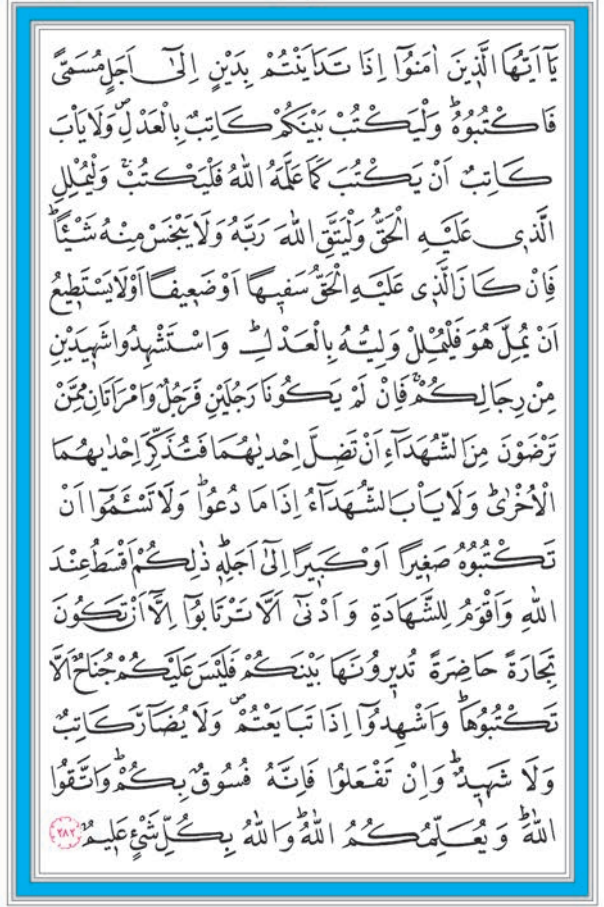 يَٓا اَيُّهَا الَّذ۪ينَ اٰمَنُٓوا اِذَا تَدَايَنْتُمْ بِدَيْنٍ اِلٰٓى اَجَلٍ مُسَمًّى
فَاكْتُبُوهُۜ وَلْيَكْتُبْ بَيْنَكُمْ كَاتِبٌ بِالْعَدْلِۖ وَلَا يَأْبَ
كَاتِبٌ اَنْ يَكْتُبَ كَمَا عَلَّمَهُ اللّٰهُ فَلْيَكْتُبْۚ وَلْيُمْلِلِ
الَّذ۪ي عَلَيْهِ الْحَقُّ وَلْيَتَّقِ اللّٰهَ رَبَّهُ وَلَا يَبْخَسْ مِنْهُ شَيْـًٔاۜ
فَاِنْ كَانَ الَّذ۪ي عَلَيْهِ الْحَقُّ سَف۪يهًا اَوْ ضَع۪يفًا اَوْ لَا يَسْتَط۪يعُ
اَنْ يُمِلَّ هُوَ فَلْيُمْلِلْ وَلِيُّهُ بِالْعَدْلِۜ وَاسْتَشْهِدُوا شَه۪يدَيْنِ
مِنْ رِجَالِكُمْۚ فَاِنْ لَمْ يَكُونَا رَجُلَيْنِ فَرَجُلٌ وَامْرَاَتَانِ مِمَّنْ
تَرْضَوْنَ مِنَ الشُّهَدَٓاءِ اَنْ تَضِلَّ اِحْدٰيهُمَا فَتُذَكِّرَ اِحْدٰيهُمَا
الْاُخْرٰىۜ وَلَا يَأْبَ الشُّهَدَٓاءُ اِذَا مَا دُعُواۜ وَلَا تَسْـَٔمُٓوا اَنْ
تَكْتُبُوهُ صَغ۪يرًا اَوْ كَب۪يرًا اِلٰٓى اَجَلِه۪ۜ ذٰلِكُمْ اَقْسَطُ عِنْدَ
اللّٰهِ وَاَقْوَمُ لِلشَّهَادَةِ وَاَدْنٰٓى اَلَّا تَرْتَابُٓوا اِلَّٓا اَنْ تَكُونَ
تِجَارَةً حَاضِرَةً تُد۪يرُونَهَا بَيْنَكُمْ فَلَيْسَ عَلَيْكُمْ جُنَاحٌ اَلَّا
تَكْتُبُوهَاۜ وَاَشْهِدُٓوا اِذَا تَبَايَعْتُمْۖ وَلَا يُضَٓارَّ كَاتِبٌ
وَلَا شَه۪يدٌۜ وَاِنْ تَفْعَلُوا فَاِنَّهُ فُسُوقٌ بِكُمْۜ وَاتَّقُوا
اللّٰهَۜ وَيُعَلِّمُكُمُ اللّٰهُۜ وَاللّٰهُ بِكُلِّ شَيْءٍ عَل۪يمٌ ﴿٢٨٢﴾